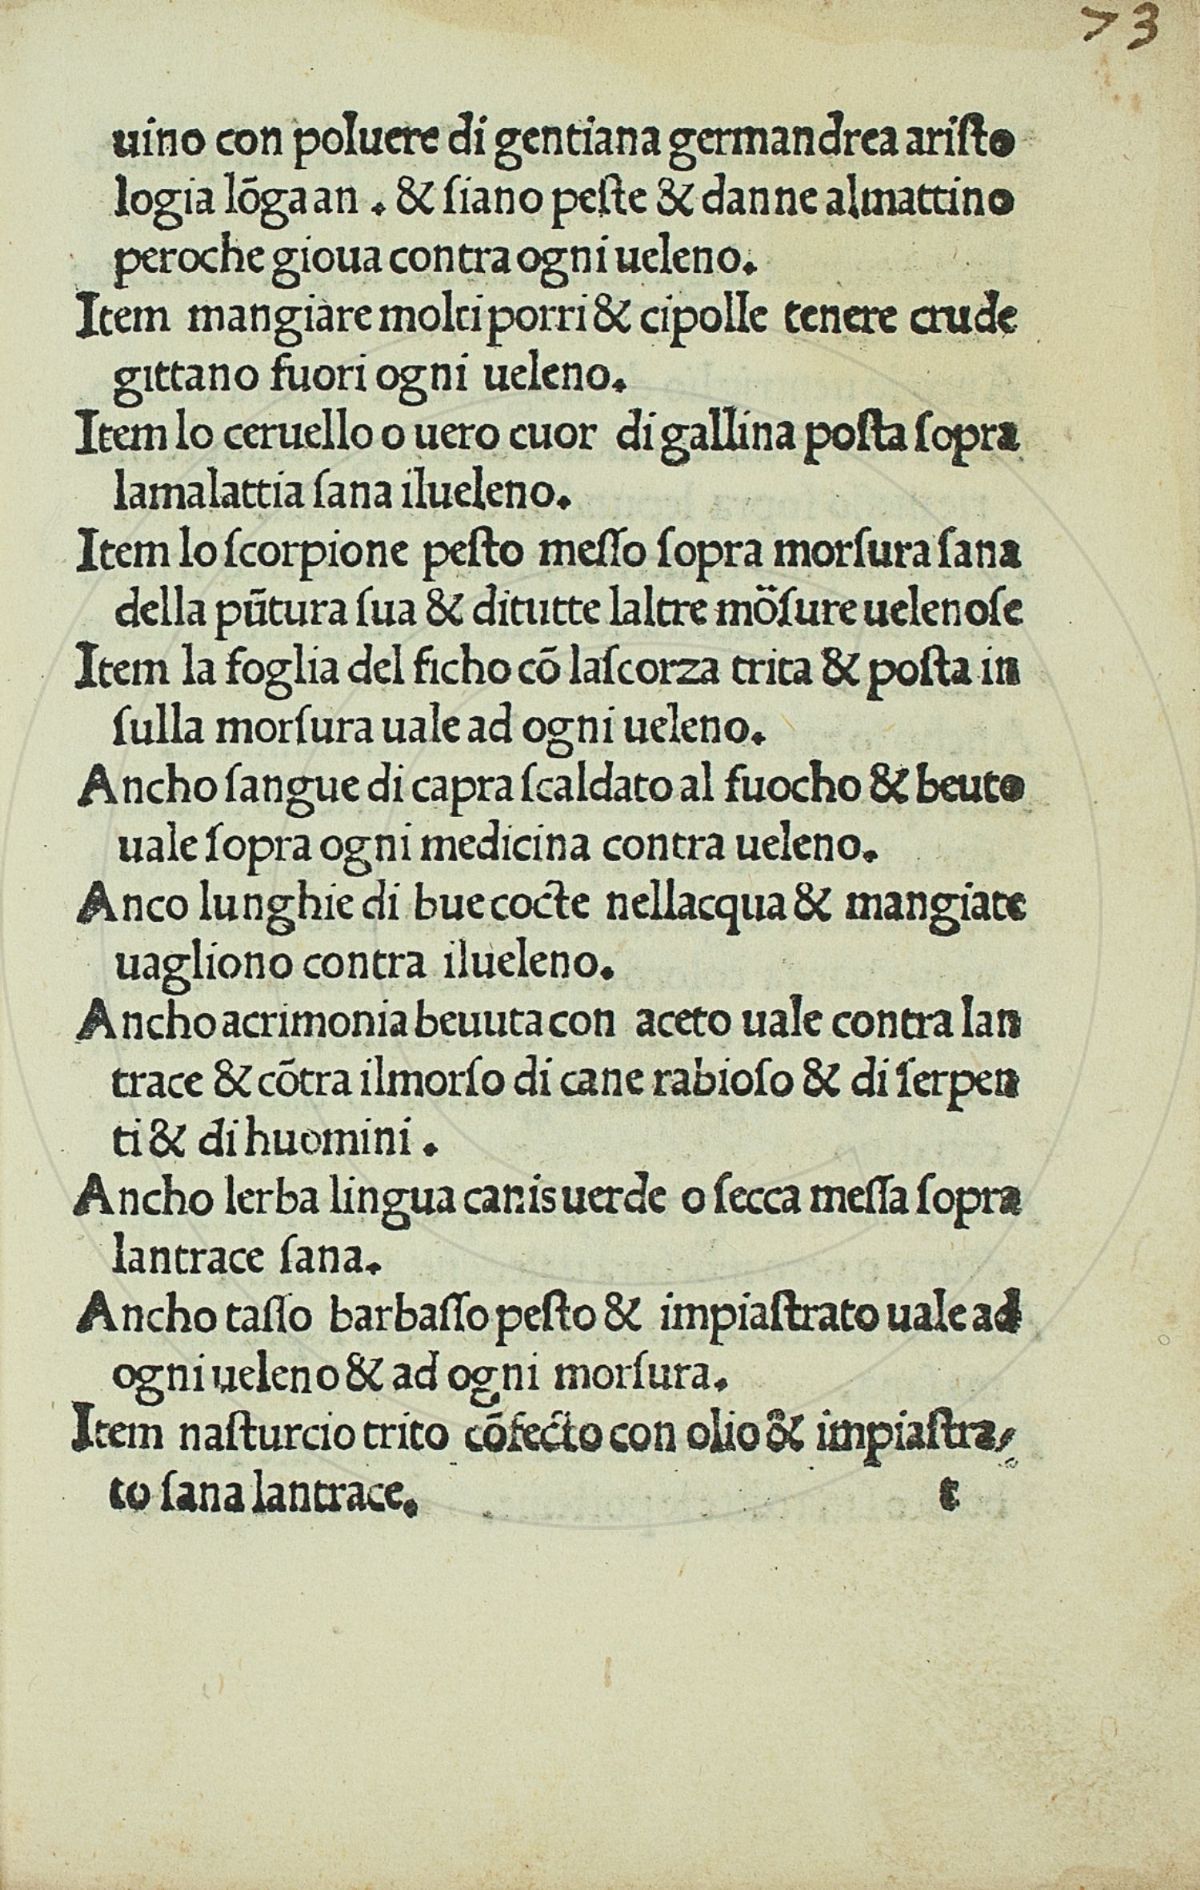 73
uino con poluere di gentiana germandrea aristo
logia lōga an . & siano peste & danne almattino
peroche gioua contra ogni ueleno.
Item mangiare molti porri & cipolle tenere crude
gittano fuori ogni ueleno.
Item lo ceruello o uero cuor di gallina posta sopra
lamalattia sana ilueleno.
Item lo scorpione pesto messo sopra morsura sana
della pūtura sua & ditutte laltre mösure uelenose
Item la foglia del ficho cō lascorza trita & posta in
sulla morsura uale ad ogni ueleno.
Ancho sangue di capra scaldato al fuocho & beuto
uale sopra ogni medicina contra ueleno.
Anco lunghie di bue cocte nellacqua & mangiate
uagliono contra ilueleno.
Ancho acrimonia beuuta con aceto uale contra lan
trace & cōtra ilmorso di cane rabioso & di serpen
ti & di huomini .
Ancho lerba lingua canis uerde o secca messa sopra
lantrace sana.
Ancho tasso barbasso pesto & impiastrato uale ad
ogni ueleno & ad ogni morsura.
Item nasturcio trito cōfecto con olio & impiastra/
to sana lantrace. t